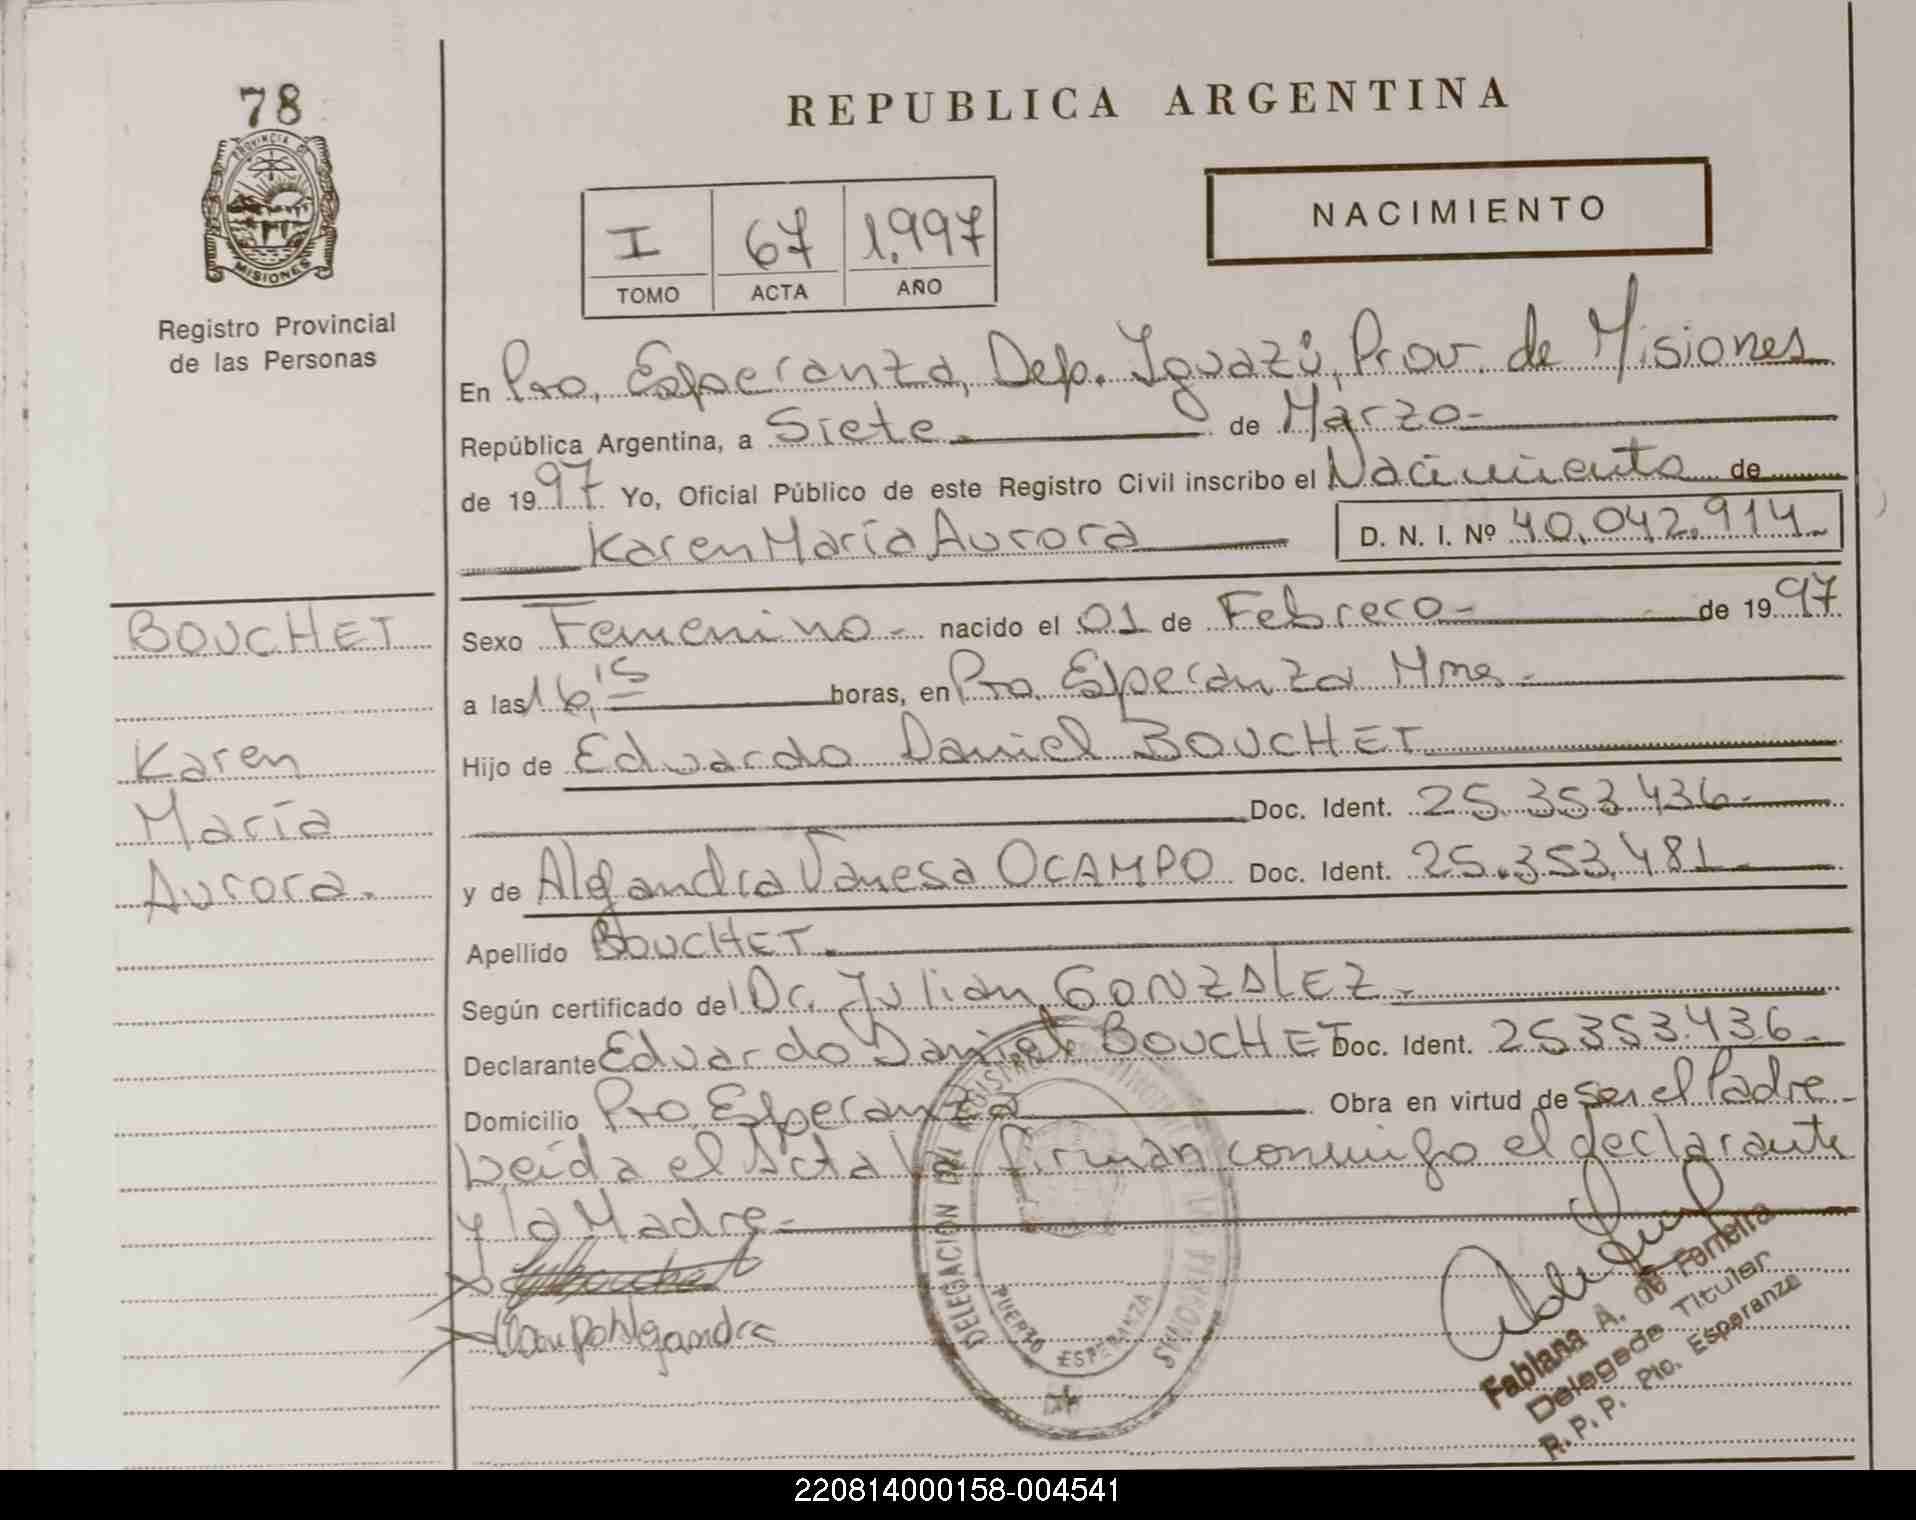 78
PROVINCIA DE
MISIONES
Registro Provincial
de las Personas
REPUBLICA ARGENTINA
NACIMIENTO
I 67 1.997
TOMO ACTA AÑO
En Pto. Esperanza, Dep. Iguazú, Prov. de Misiones
República Argentina, a Siete.- de Marzo-
de 1997. Yo, Oficial Público de este Registro Civil inscribo el Nacimiento de
Karen María Aurora
D. N. I. Nº 40.042.914.-
BOUCHET
Karen
María
Aurora.
Sexo Femenino.- nacido el 01 de Febrero- de 1997
a las 16,15 horas, en Pto. Esperanza Mnes.-
Hijo de Eduardo Daniel BOUCHET
Doc. Ident. 25.353.436.-
y de Alejandra Vanesa OCAMPO Doc. Ident. 25.353.481.-
Apellido BOUCHET.
Según certificado del Dr. Julian GONZALEZ.-
Declarante Eduardo Daniel BOUCHET Doc. Ident. 25353.436.-
Domicilio Pto. Esperanza Obra en virtud de ser el Padre.-
Leída el Acta firman conmigo el declarante
y la Madre.-
Ocampo Alejandra
DELEGACION DEL REGISTRO PROVINCIAL DE LAS PERSONAS
PUERTO ESPERANZA
Fabiana A. de Ferreira
Delegada Titular
R. P. P. Pto. Esperanza
220814000158-004541